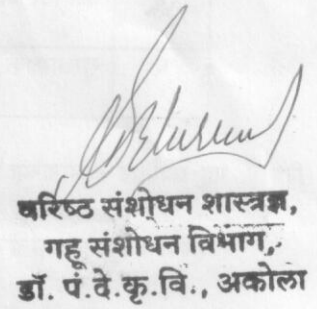 वरिष्ठ संशोधन शास्त्रज्ञ,
गहू संशोधन विभाग,
डॉ. पं.दे.कृ.वि., अकोला